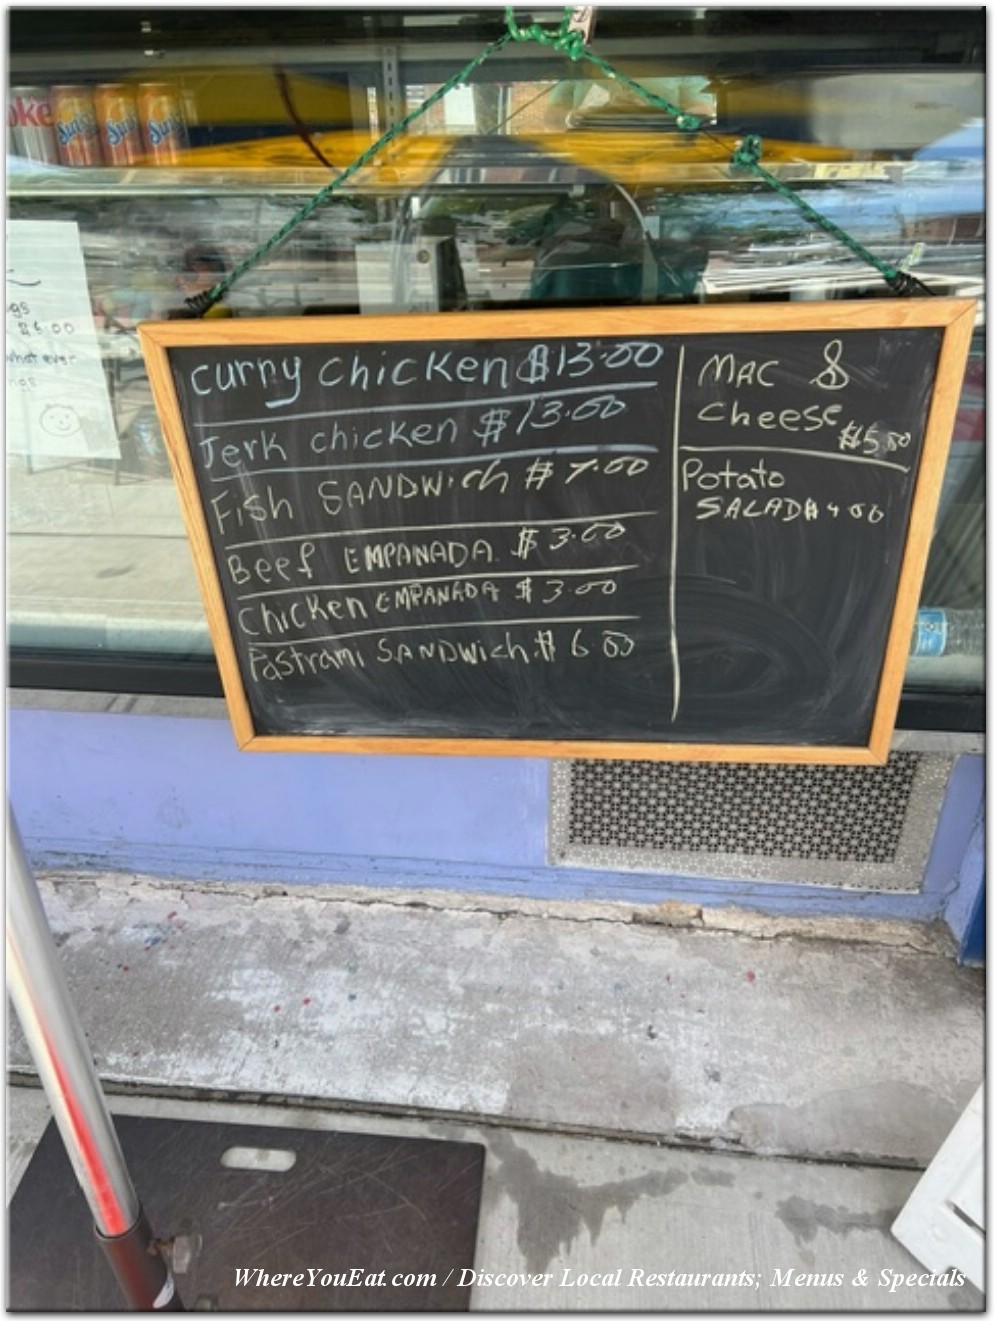 oke
Sunkist
Sunkist
Sunkist
gs
$6.00
what ever
curry chicken $13.00
Jerk chicken $13.00
Fish SANDWich $7.00
Beef EMPANADA $3.00
Chicken EMPANADA $3.00
Pastrami SANDWich $6.00
MAC &
Cheese
$5.00
Potato
SALAD $4.00
WhereYouEat.com / Discover Local Restaurants; Menus & Specials